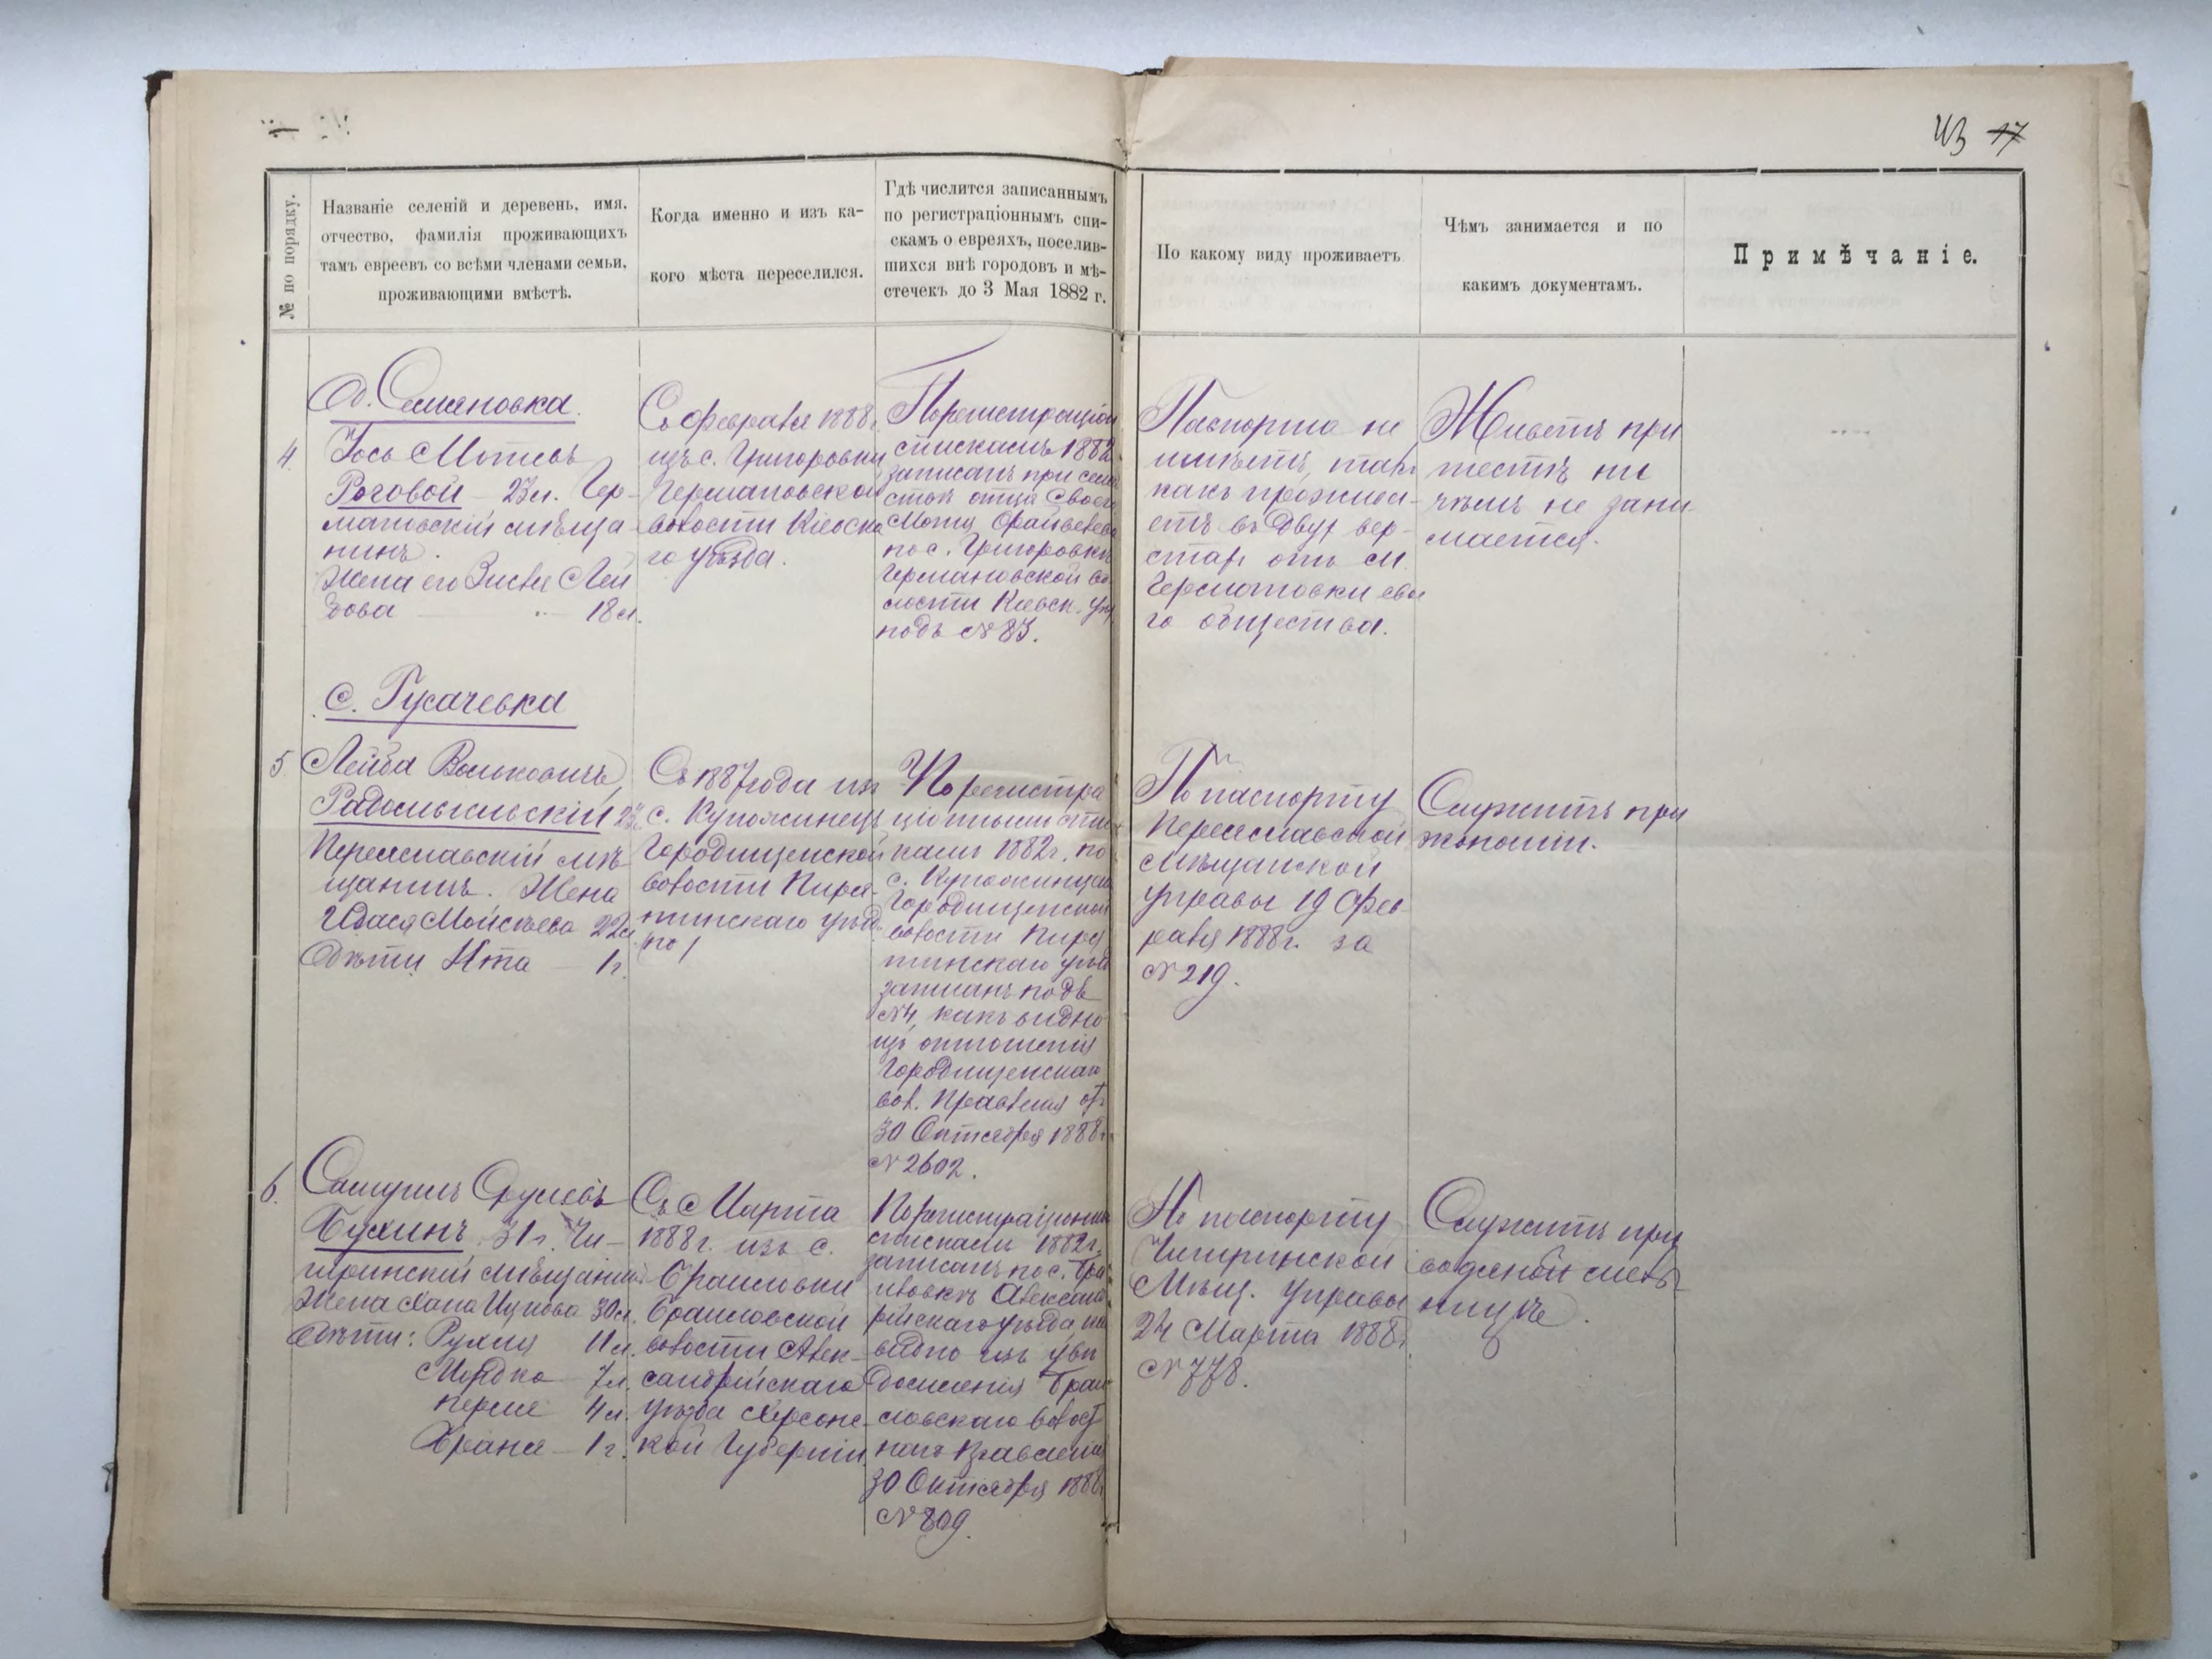 43 17
№ по порядку.
Названіе селеній и деревень, имя,
отчество, фамилія проживающихъ
тамъ евреевъ со всѣми членами семьи,
проживающими вмѣстѣ.
Когда именно и изъ ка-
кого мѣста переселился.
Гдѣ числится записаннымъ
по регистраціоннымъ спи-
скамъ о евреяхъ, поселив-
шихся внѣ городовъ и мѣ-
стечекъ до 3 Мая 1882 г.
По какому виду проживаетъ
Чѣмъ занимается и по
какимъ документамъ.
Примѣчаніе.
4.
Роговой – 23 л. Гер-
мановскій мѣща
нинъ.
Жена его Лей
бова 18 л.
Съ февраля 1888 г.
изъ с. Григоровки
Германовской
волости Кіевска
го уѣзда.
По регистрацион
спискамъ 1882
записанъ при семе
отца своего
Моти
по с. Григоровки
Германовской во
лости Кіевск. уѣз
подъ № 83.
Паспорта не
имѣетъ, такъ
какъ прожива-
етъ въ двух вер-
стах отъ м.
Германовки сво
го общества.
Живетъ при
тестѣ ни
чѣмъ не зани
мается.
с. Гусачевка
5.
Лейба Волькович
Радомысльскій
Переяславскій мѣ
щанинъ. Жена
Мойсѣева 22 л.
Дѣти Ита – 1 г.
Съ 1887 года из
с.
Городищенской
волости Пиря-
тинскаго уѣзд.
По регистра
ціонным спис
камъ 1882 г. по
с.
Городищенской
волости Пиря
тинскаго уѣзд
записанъ подъ
№ 4, какъ видно
изъ отношенія
Городищенскаго
вол. Правленія от
30 Октября 1888 г.
№ 2602.
По паспорту
Переяславской
мѣщанской
управы 19 Фев-
раля 1888 г. за
№ 219.
Служитъ при
экономіи.
6.
Самуилъ Срулевъ
Бухинъ 31 г. Чи-
гиринскій мѣщанин.
Жена Хана Ицкова 30 л.
Дѣти: Рухля 11 л.
Мордко 7 л.
4 л.
1 г.
Съ Марта
1888 г. изъ с.
Браиловки
Браиловской
волости Алек-
сандрійскаго
уѣзда Херсонс-
кой Губерніи.
По регистраціонным
спискамъ 1882 г.
записанъ по с. Бра
иловкѣ Александ
рійскаго уѣзда, ка
видно изъ увѣ
домленія Браи
ловскаго Волост
наго Правленія
30 Октября 1888
№ 809.
По паспорту
Чигиринской
Мѣщ. Управы
24 Марта 1888 г.
№ 778.
Служитъ при
водяной мель
ницѣ.